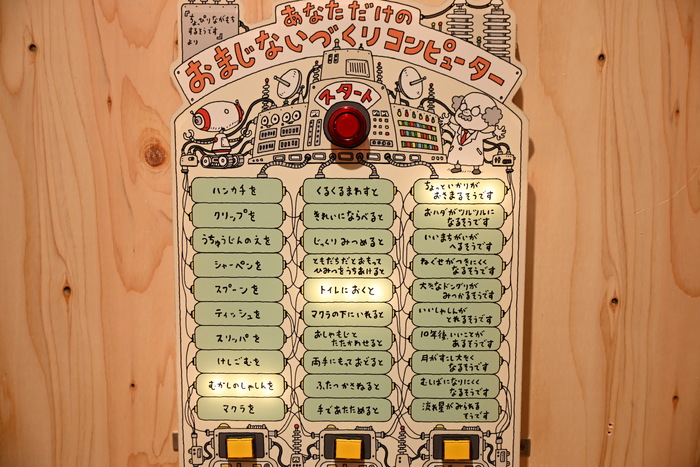 『ちょっぴりながもち
するそうです』
より
あなただけの
おまじないづくりコンピューター
スタート
ハンカチを
クリップを
うちゅうじんのえを
シャーペンを
スプーンを
ティッシュを
スリッパを
けしごむを
むかしのしゃしんを
マクラを
くるくるまわすと
きれいにならべると
じっくりみつめると
ともだちだとおもって
ひみつをうちあけると
トイレにおくと
マクラの下にいれると
おしゃもじと
たたかわせると
両手にもっておどると
ふたつかさねると
手であたためると
ちょっといかりが
おさまるそうです
おハダがツルツルに
なるそうです
いいまちがいが
へるそうです
ねぐせがつきにくく
なるそうです
大きなドングリが
みつかるそうです
いいしゃしんが
とれるそうです
10年後いいことが
あるそうです
月がすこし大きく
なるそうです
むしばになりにくく
なるそうです
流れ星がみられる
そうです